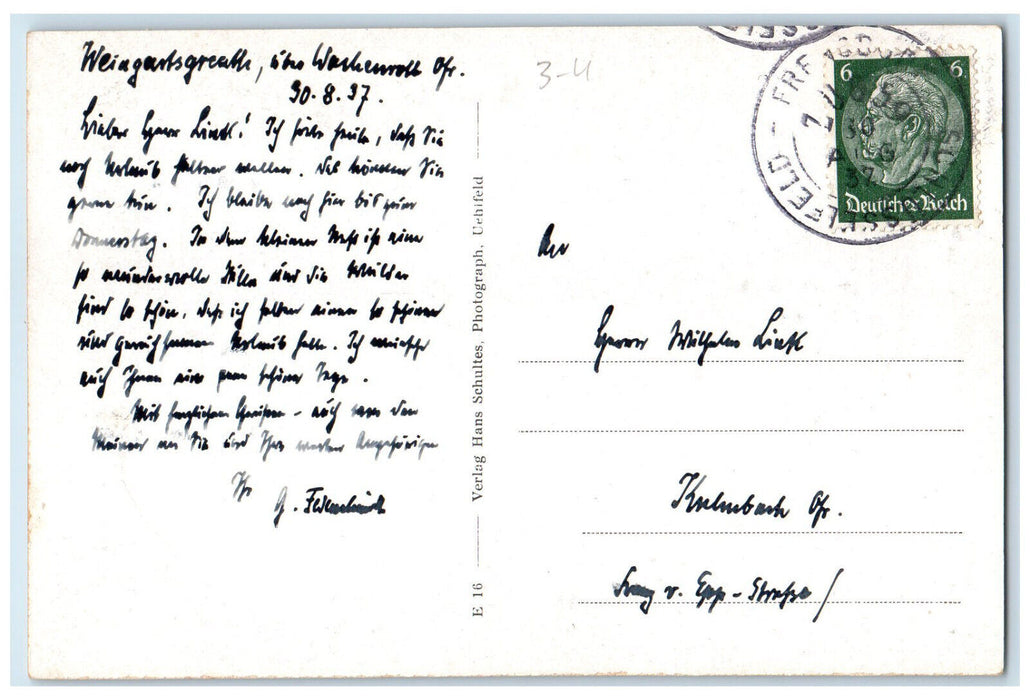 Weingartsgreuth, über Wachenroth Ofr.
30.8.37.
Lieber Herr Lintl! Ich höre heute, daß Sie
noch Urlaub haben wollen. Das können Sie
gerne tun. Ich bleibe noch hier bis zum
Donnerstag. In dem kleinen Nest ist eine
so wundervolle Stille und die Wälder
sind so schön, daß ich selten einen so schönen
und geruhsamen Urlaub hatte. Ich wünsche
auch Ihnen ein paar schöne Tage.
Mit herzlichen Grüßen – auch von den
Meinen an Sie und Ihre werten Angehörigen
Ihr
G.
3-4
Verlag Hans Schultes, Photograph, Uehlfeld
E 16
6 6
Deutsches Reich
30
An
Herrn Wilhelm Lintl
Kulmbach Ofr.
v. Epp-Straße /